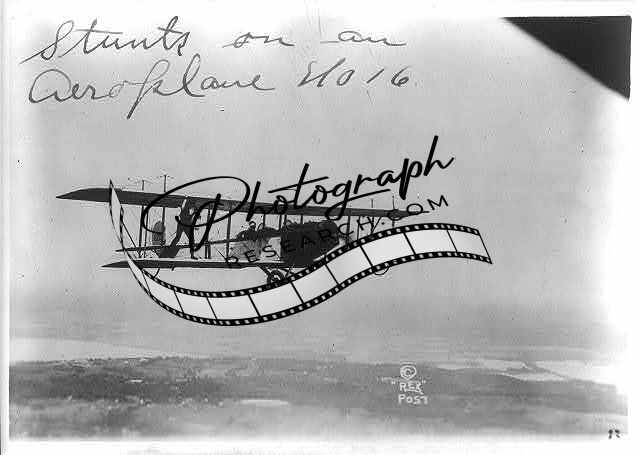 Stunts on an
Aeroplane No 16
Photograph
RESEARCH.COM
©
"REX"
POST